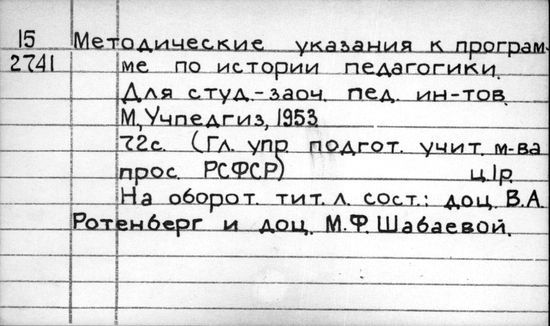 15 Методические указания к програм-
2741 ме по истории педагогики.
Для студ.-заоч. пед. ин-тов.
М, Учпедгиз, 1953
72с. (Гл. упр. подгот. учит. м-ва
прос. РСФСР) ц. 1р.
На оборот. тит. л. сост.: доц. В.А.
Ротенберг и доц. М.Ф. Шабаевой.